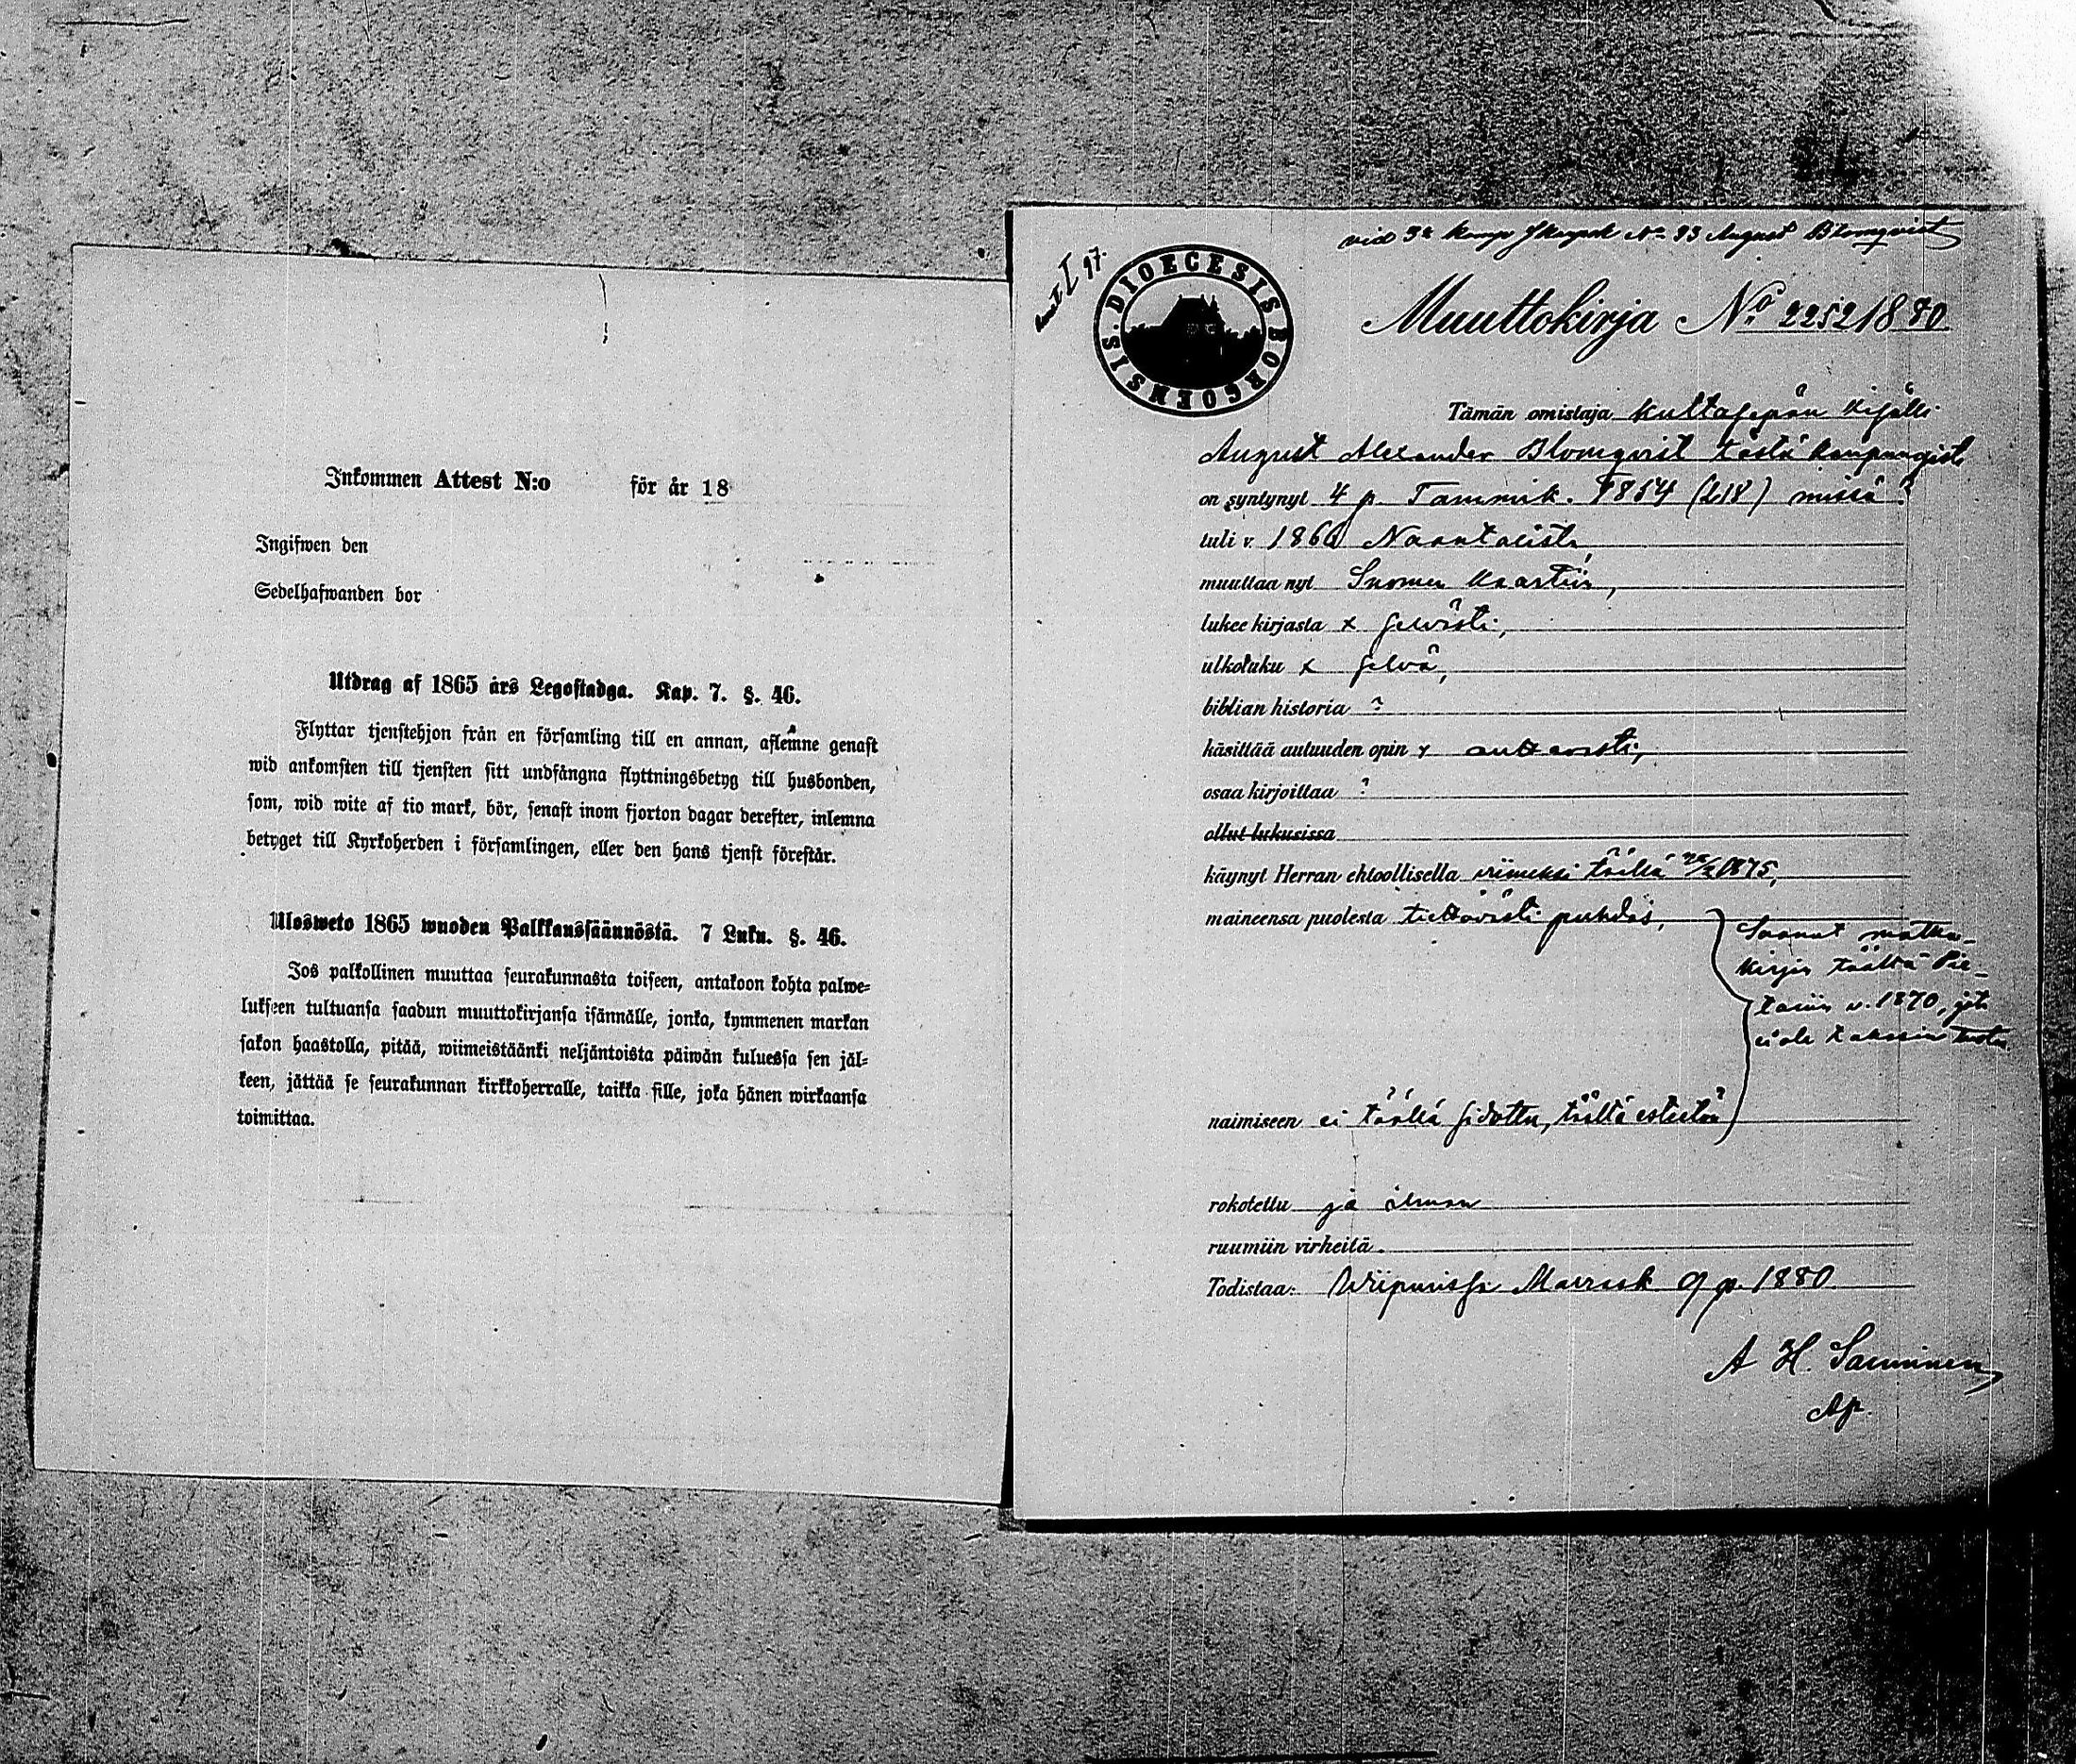 Inkommen Attest N:o för år 18
Ingifwen den
Sedelhafwanden bor
Utdrag af 1865 års Legostadga. Kap. 7. §. 46.
Flyttar tjenstehjon från en församling till en annan, aflemne genast
wid ankomsten till tjensten sitt undfångna flyttningsbetyg till husbonden,
som, wid wite af tio mark, bör, senast inom fjorton dagar derefter, inlemna
betyget till Kyrkoherden i församlingen, eller den hans tjenst förestår.
Ulosweto 1865 wuoden Palkkaussäännöstä. 7 Luku. §. 46.
Jos palkollinen muuttaa seurakunnasta toiseen, antakoon kohta palwe-
lukseen tultuansa saadun muuttokirjansa isännälle, jonka, kymmenen markan
sakon haastolla, pitää, wiimeistäänki neljäntoista päiwän kuluessa sen jäl-
keen, jättää se seurakunnan kirkkoherralle, taikka sille, joka hänen wirkaansa
toimittaa.
vid 3e komp No 93 August Blomqvist
I 97.
DIOECESIS BORGOENSIS.
Muuttokirja No. 2252 1880
Tämän omistaja kultasepän kisälli
August Alexander Blomqvist tästä kaupungista
on syntynyt 4 p. Tammik. 1854 (218) missä?
tuli v. 1860 Naantalista,
muuttaa nyt Suomen Kaartiin,
lukee kirjasta x selvästi,
ulkoluku x selvä,
biblian historia ?
käsittää autuuden opin x auttavasti,
osaa kirjoittaa ?
ollut lukusissa
käynyt Herran ehtoollisella viimeksi täällä 1875,
maineensa puolesta tiettävästi puhdas,
Saanut matka-
kirjan täältä Pie-
tariin v. 1870, jota
ei ole takaisin tuotu
naimiseen ei täällä sidottu, täältä esteetön
rokotettu ja ilman
ruumiin virheitä.
Todistaa: Wiipurissa Marrask 9 p. 1880
A H. Saxminen
Ap.